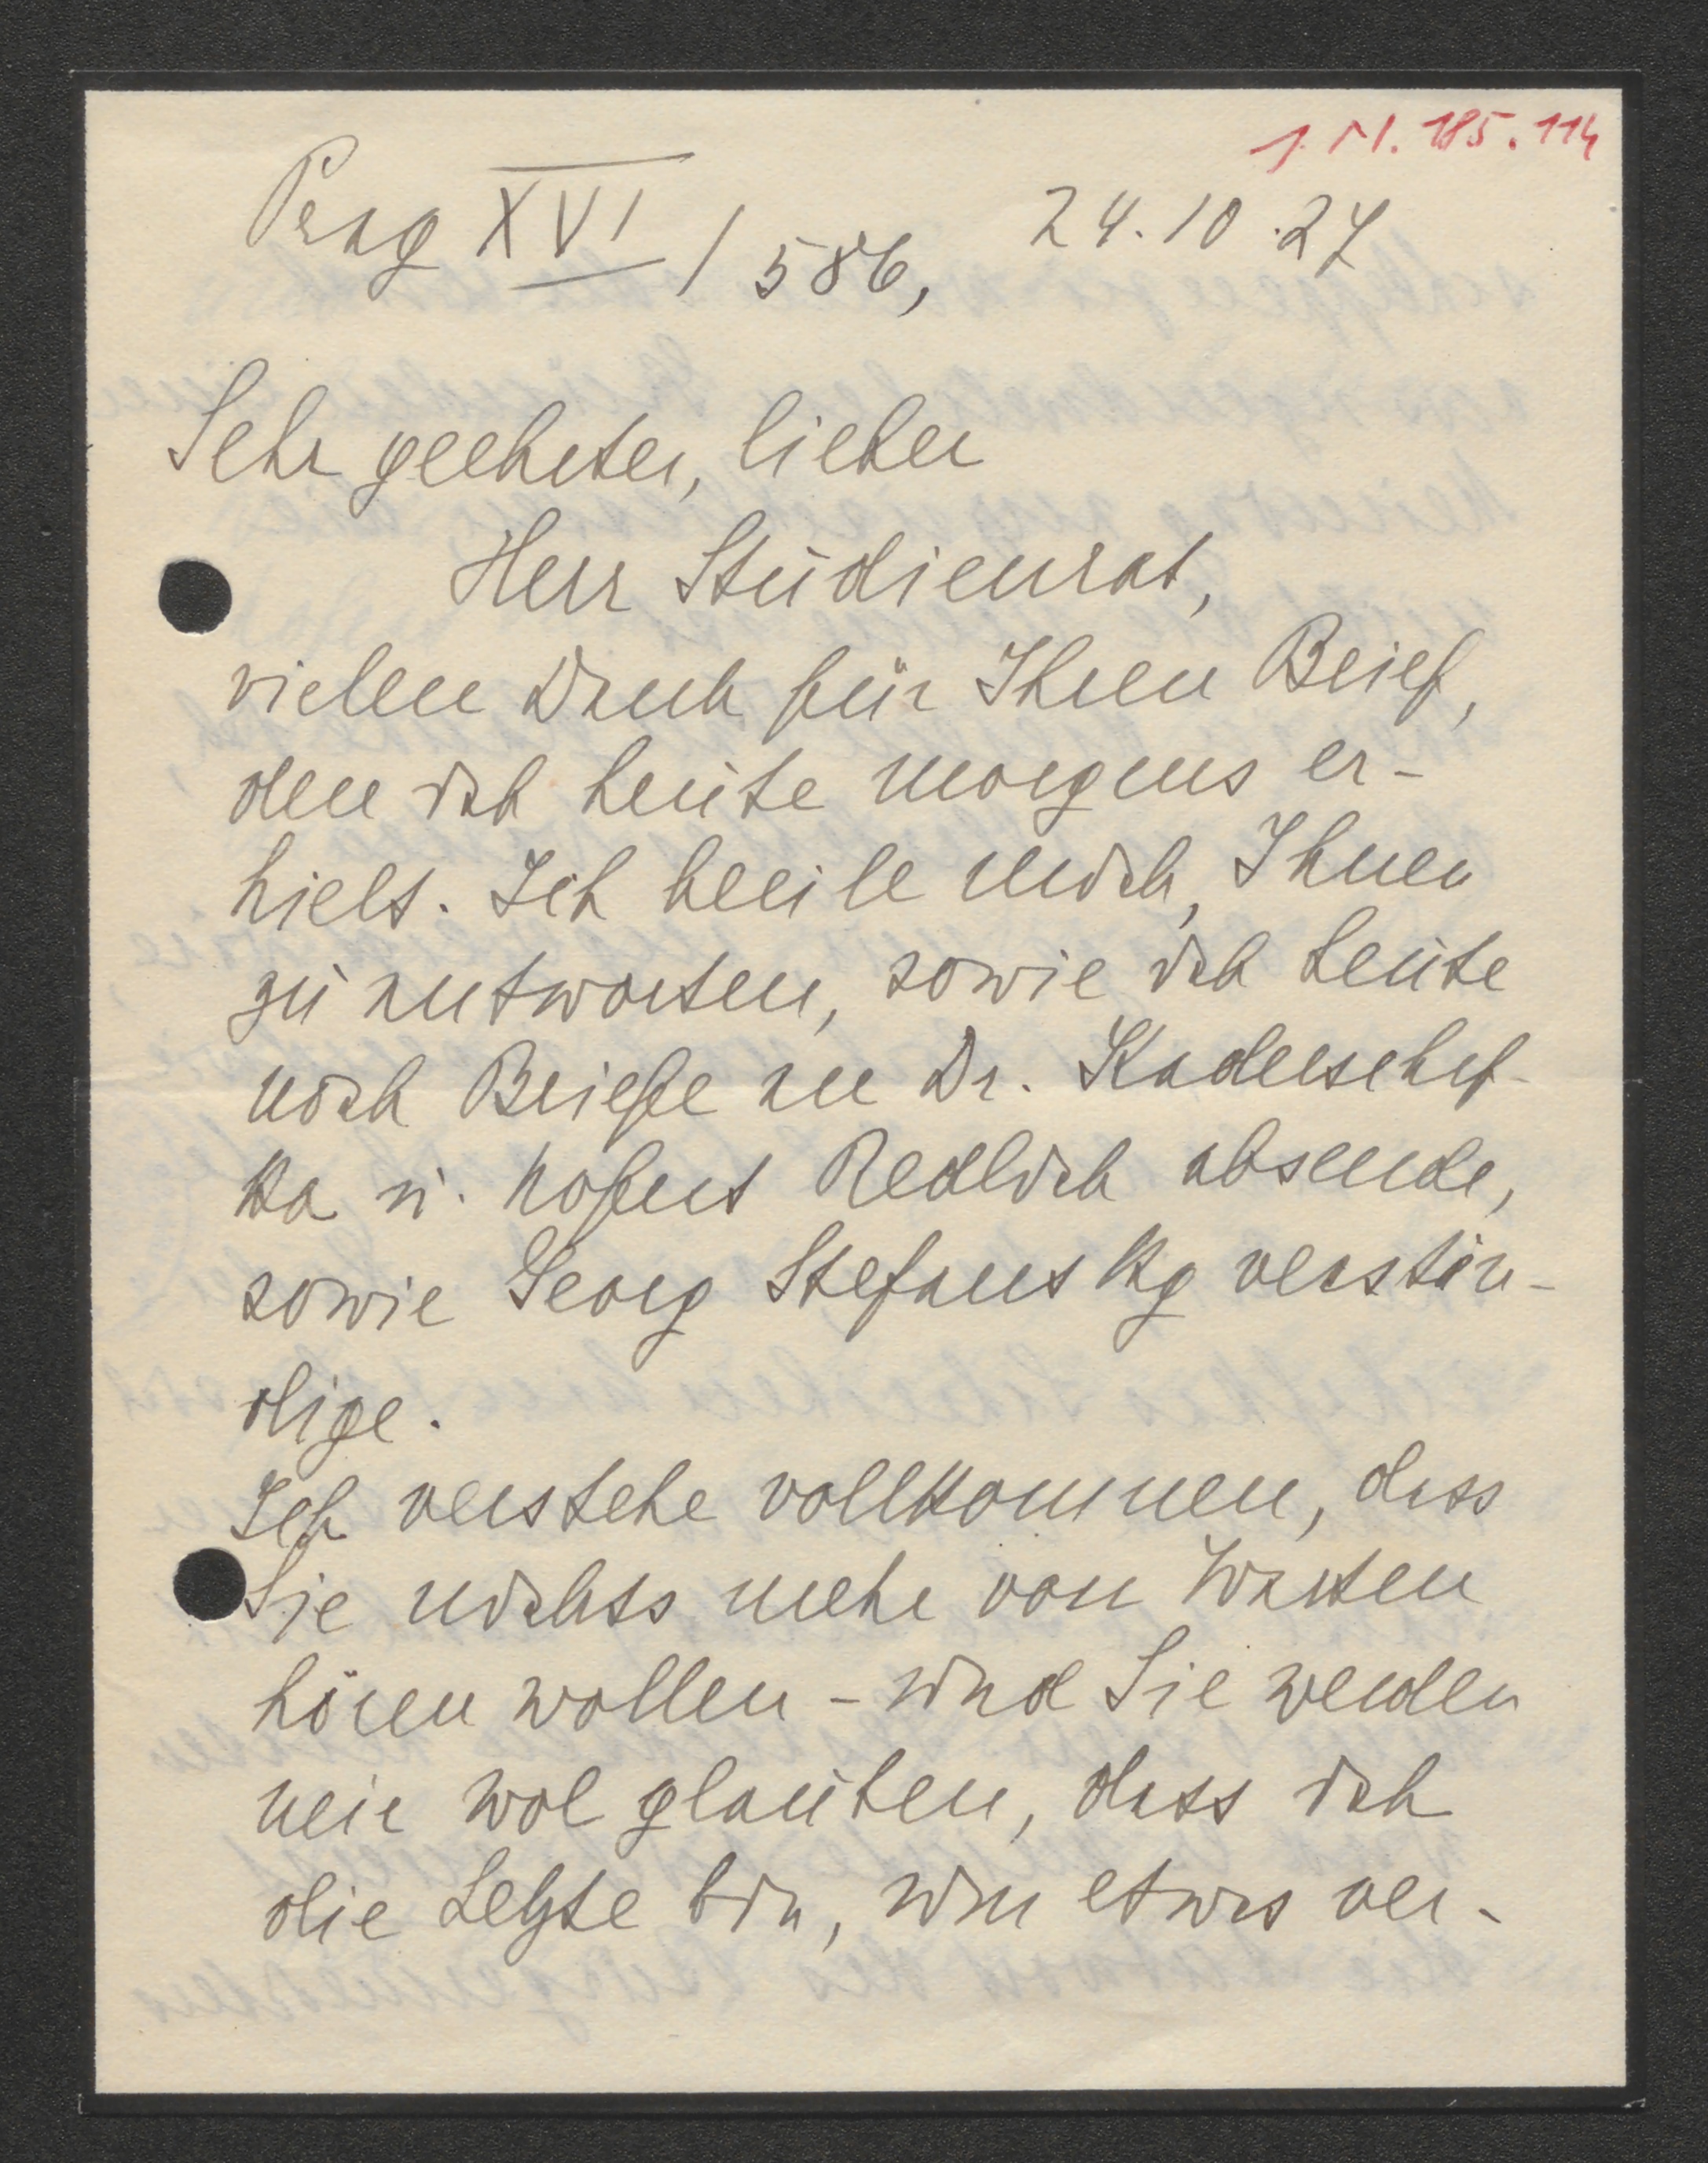 1. N. 185.114
Prag XVI / 586, 24.10.27
Sehr geehrter, lieber
Herr Studienrat,
vielen Dank für Ihren Brief,
den ich heute morgens er-
hielt. Ich beeile mich, Ihnen
zu antworten, sowie ich heute
noch Briefe an Dr. Kaderschef-
ka u. Redlich absende,
sowie Georg Stefansky verstän-
dige.
Ich verstehe vollkommen, dass
Sie nichts mehr von Warten
hören wollen - und Sie werden
mir wol glauben, dass ich
die Letzte bin, um etwas ver-